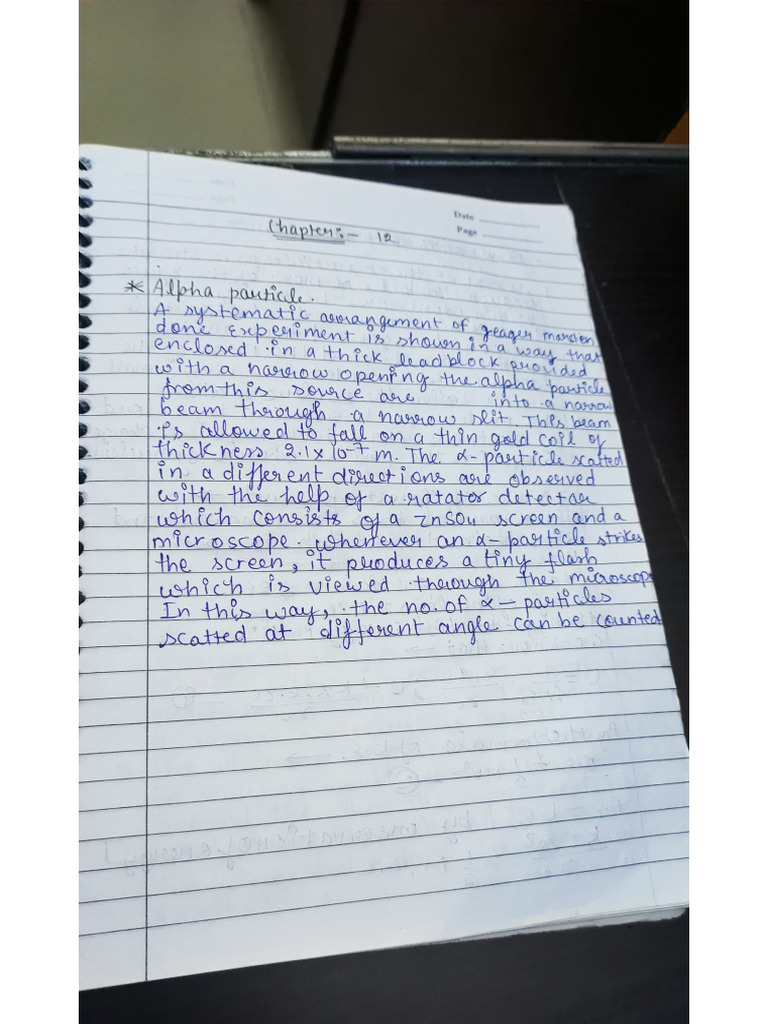 Date
Page
Chapter:- 12
* Alpha particle.
A systematic arrangement of geager marsden
done experiment is shown in a way that
enclosed in a thick lead block provided
with a narrow opening the alpha particle
from this source are into a narrow
beam through a narrow slit. This beam
is allowed to fall on a thin gold coil of
thickness 2.1x10-7 m. The α-particle scatted
in a different directions are observed
with the help of a ratator detectar
which consists of a ZnSO4 screen and a
microscope. whenever an α-particle strikes
the screen, it produces a tiny flash
which is viewed through the microscope
In this way, the no. of α-particles
scatted at different angle can be counted